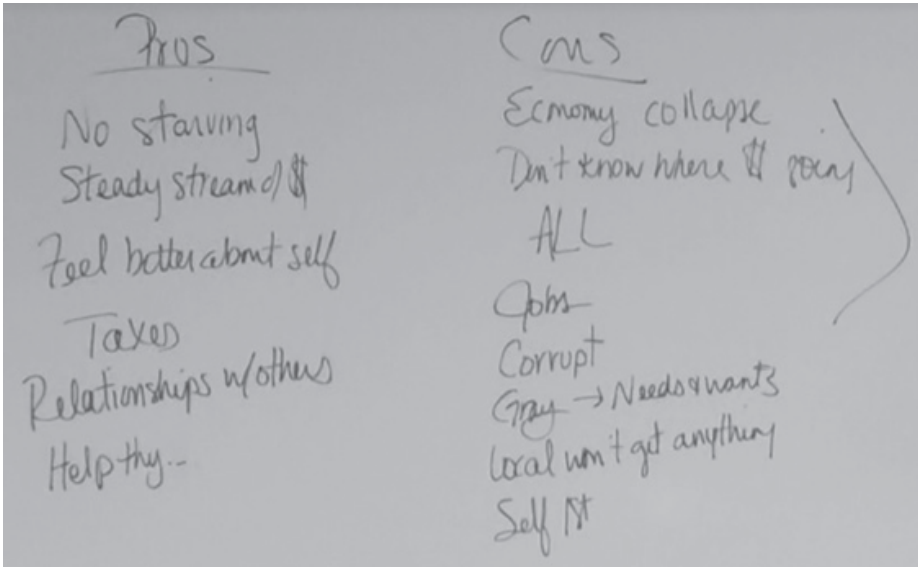 Pros
No starving
Steady stream of $
Feel better about self
Taxes
Relationships w/others
Help thy...
Cons
Economy collapse
Don't know where $ going
ALL
Jobs
Corrupt
Gray → Needs & wants
Local won't get anything
Self 1st